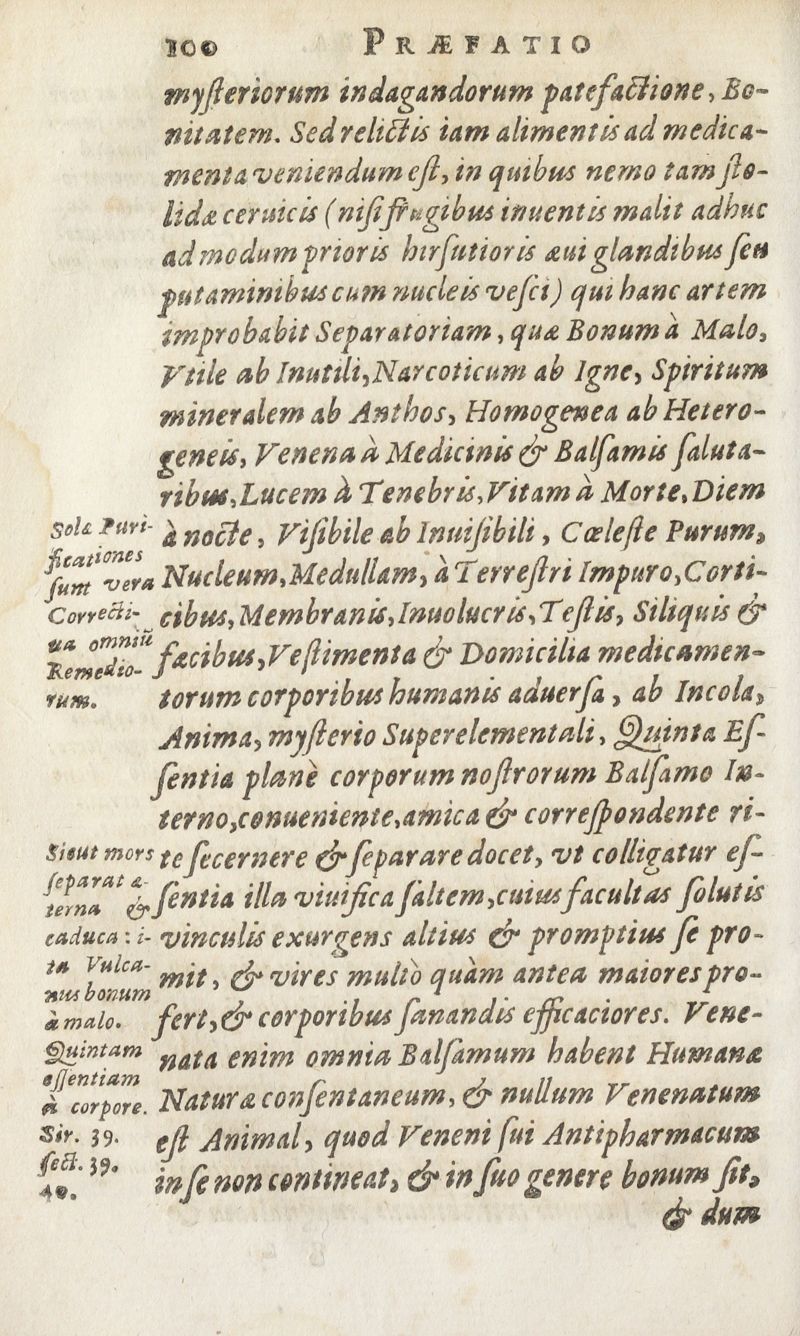 100 PRÆFATIO
myſteriorum indagandorum patefactione, Bo-
nitatem. Sed relictis iam alimentis ad medica-
menta veniendum eſt, in quibus nemo tam ſto-
lidæ ceruicis (niſi frugibus inuentis malit adhuc
ad modum prioris hirſutioris æui glandibus ſeu
putaminibus cum nucleis veſci) qui hanc artem
improbabit Separatoriam, quæ Bonum à Malo,
Vtile ab Inutili, Narcoticum ab Igne, Spiritum
mineralem ab Anthos, Homogenea ab Hetero-
geneis, Venena à Medicinis & Balſamis ſaluta-
ribus, Lucem à Tenebris, Vitam à Morte, Diem
à nocte, Viſibile ab Inuiſibili, Cœleſte Purum,
Nucleum, Medullam, à Terreſtri Impuro, Corti-
cibus, Membranis, Inuolucris, Teſtis, Siliquis &
fæcibus, Veſtimenta & Domicilia medicamen-
torum corporibus humanis aduerſa, ab Incola,
Anima, myſterio Superelementali, Quinta Eſ-
ſentia planè corporum noſtrorum Balſamo In-
terno, conueniente, amica & correſpondente ri-
te ſecernere & ſeparare docet, vt colligatur eſ-
ſentia illa viuifica ſaltem, cuius facultas ſolutis
vinculis exurgens altius & promptius ſe pro-
mit, & vires multò quàm antea maiores pro-
fert, & corporibus ſanandis efficaciores. Vene-
nata enim omnia Balſamum habent Humanæ
Naturæ conſentaneum, & nullum Venenatum
eſt Animal, quod Veneni ſui Antipharmacum
in ſe non contineat, & in ſuo genere bonum ſit,
& dum
Solæ Puri-
ficationes
ſunt veræ
Correcti-
ua omniũ
Remedio-
rum.
Sicut mors
ſeparat æ-
terna &
caduca: i-
ta Vulca-
nus bonum
à malo.
Quintam
eſſentiam
à corpore.
Sir. 39.
ſect. 39.
40.